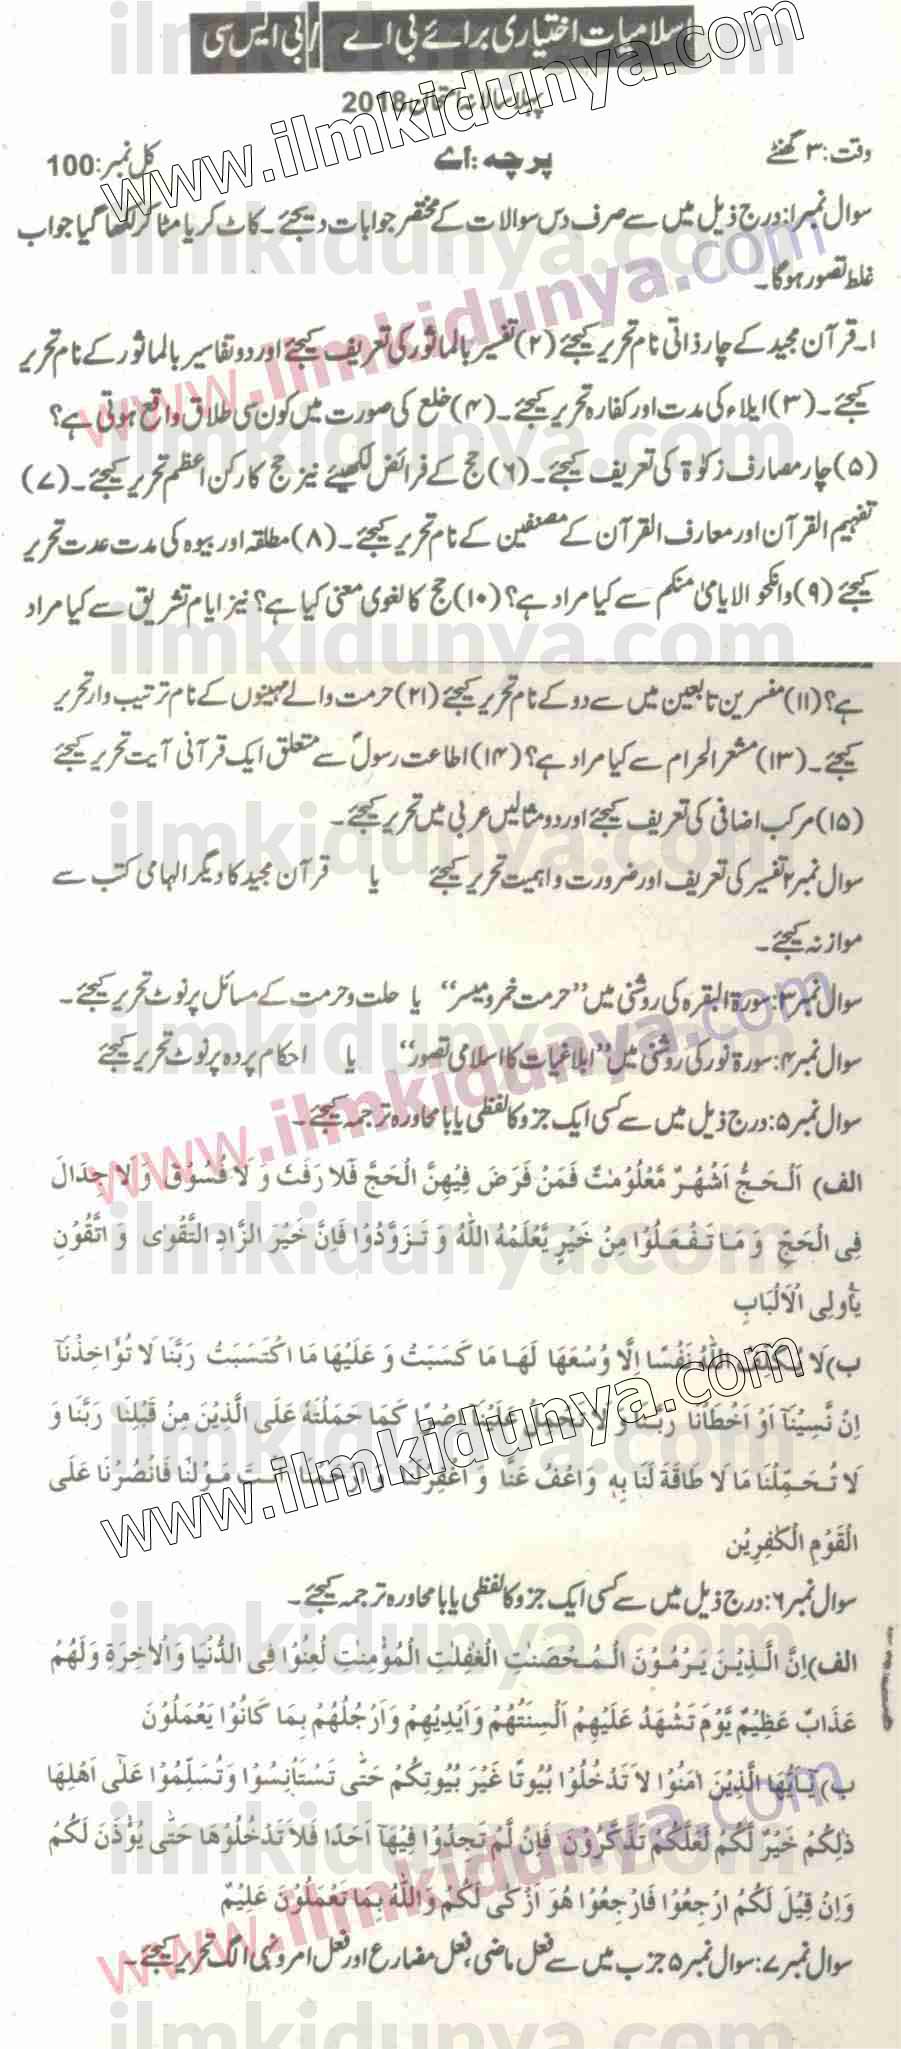 اسلامیات اختیاری برائے بی اے / بی ایس سی
پہلا سالانہ امتحان 2018
وقت: ۳ گھنٹے پرچہ: اے کل نمبر: 100
سوال نمبر ۱: درج ذیل میں سے صرف دس سوالات کے مختصر جوابات دیجئے۔ کاٹ کر یا مٹا کر لکھا گیا جواب
غلط تصور ہوگا۔
۱۔ قرآن مجید کے چار ذاتی نام تحریر کیجئے (۲) تفسیر بالماثور کی تعریف کیجئے اور دو تفاسیر بالماثور کے نام تحریر
کیجئے۔ (۳) ایلاء کی مدت اور کفارہ تحریر کیجئے۔ (۴) خلع کی صورت میں کون سی طلاق واقع ہوتی ہے؟
(۵) چار مصارف زکوٰۃ کی تعریف کیجئے۔ (۶) حج کے فرائض لکھیئے نیز حج کا رکن اعظم تحریر کیجئے۔ (۷)
تفہیم القرآن اور معارف القرآن کے مصنفین کے نام تحریر کیجئے۔ (۸) مطلقہ اور بیوہ کی مدت عدت تحریر
کیجئے (۹) وانکحوا الایامیٰ منکم سے کیا مراد ہے؟ (۱۰) حج کا لغوی معنی کیا ہے؟ نیز ایام تشریق سے کیا مراد
ہے؟ (۱۱) مفسرین تابعین میں سے دو کے نام تحریر کیجئے (۲۱) حرمت والے مہینوں کے نام ترتیب وار تحریر
کیجئے۔ (۱۳) مشعر الحرام سے کیا مراد ہے؟ (۱۴) اطاعت رسولؐ سے متعلق ایک قرآنی آیت تحریر کیجئے
(۱۵) مرکب اضافی کی تعریف کیجئے اور دو مثالیں عربی میں تحریر کیجئے۔
سوال نمبر ۲ تفسیر کی تعریف اور ضرورت و اہمیت تحریر کیجئے یا قرآن مجید کا دیگر الہامی کتب سے
موازنہ کیجئے۔
سوال نمبر ۳: سورۃ البقرہ کی روشنی میں ”حرمت خمر و میسر“ یا حلت و حرمت کے مسائل پر نوٹ تحریر کیجئے۔
سوال نمبر ۴: سورۃ نور کی روشنی میں ”ابلاغیات کا اسلامی تصور“ یا احکام پردہ پر نوٹ تحریر کیجئے
سوال نمبر ۵: درج ذیل میں سے کسی ایک جزو کا لفظی یا بامحاورہ ترجمہ کیجئے۔
الف) اَلْحَجُّ اَشْهُرٌ مَّعْلُوْمٰتٌ فَمَنْ فَرَضَ فِيْهِنَّ الْحَجَّ فَلَا رَفَثَ وَ لَا فُسُوْقَ وَ لَا جِدَالَ
فِي الْحَجِّ وَ مَا تَفْعَلُوْا مِنْ خَيْرٍ يَّعْلَمْهُ اللّٰهُ وَ تَزَوَّدُوْا فَاِنَّ خَيْرَ الزَّادِ التَّقْوٰى وَ اتَّقُوْنِ
يٰاُولِي الْاَلْبَابِ
ب) لَا يُكَلِّفُ اللّٰهُ نَفْسًا اِلَّا وُسْعَهَا لَهَا مَا كَسَبَتْ وَ عَلَيْهَا مَا اكْتَسَبَتْ رَبَّنَا لَا تُؤَاخِذْنَآ
اِنْ نَّسِيْنَآ اَوْ اَخْطَاْنَا رَبَّنَا وَ لَا تَحْمِلْ عَلَيْنَآ اِصْرًا كَمَا حَمَلْتَهٗ عَلَى الَّذِيْنَ مِنْ قَبْلِنَا رَبَّنَا وَ
لَا تُحَمِّلْنَا مَا لَا طَاقَةَ لَنَا بِهٖ وَاعْفُ عَنَّا وَ اغْفِرْلَنَا وَ ارْحَمْنَا اَنْتَ مَوْلٰنَا فَانْصُرْنَا عَلَى
الْقَوْمِ الْكٰفِرِيْنَ
سوال نمبر ۶: درج ذیل میں سے کسی ایک جزو کا لفظی یا بامحاورہ ترجمہ کیجئے۔
الف) اِنَّ الَّذِيْنَ يَرْمُوْنَ الْمُحْصَنٰتِ الْغٰفِلٰتِ الْمُؤْمِنٰتِ لُعِنُوْا فِي الدُّنْيَا وَالْاٰخِرَةِ وَلَهُمْ
عَذَابٌ عَظِيْمٌ يَّوْمَ تَشْهَدُ عَلَيْهِمْ اَلْسِنَتُهُمْ وَاَيْدِيْهِمْ وَاَرْجُلُهُمْ بِمَا كَانُوْا يَعْمَلُوْنَ
ب) يٰٓاَيُّهَا الَّذِيْنَ اٰمَنُوْا لَا تَدْخُلُوْا بُيُوْتًا غَيْرَ بُيُوْتِكُمْ حَتّٰى تَسْتَاْنِسُوْا وَتُسَلِّمُوْا عَلٰٓى اَهْلِهَا
ذٰلِكُمْ خَيْرٌ لَّكُمْ لَعَلَّكُمْ تَذَكَّرُوْنَ فَاِنْ لَّمْ تَجِدُوْا فِيْهَآ اَحَدًا فَلَا تَدْخُلُوْهَا حَتّٰى يُؤْذَنَ لَكُمْ
وَاِنْ قِيْلَ لَكُمُ ارْجِعُوْا فَارْجِعُوْا هُوَ اَزْكٰى لَكُمْ وَاللّٰهُ بِمَا تَعْمَلُوْنَ عَلِيْمٌ
سوال نمبر ۷: سوال نمبر ۵ جز ب میں سے فعل ماضی، فعل مضارع اور فعل امر و نہی الگ تحریر کیجئے۔
www.ilmkidunya.com